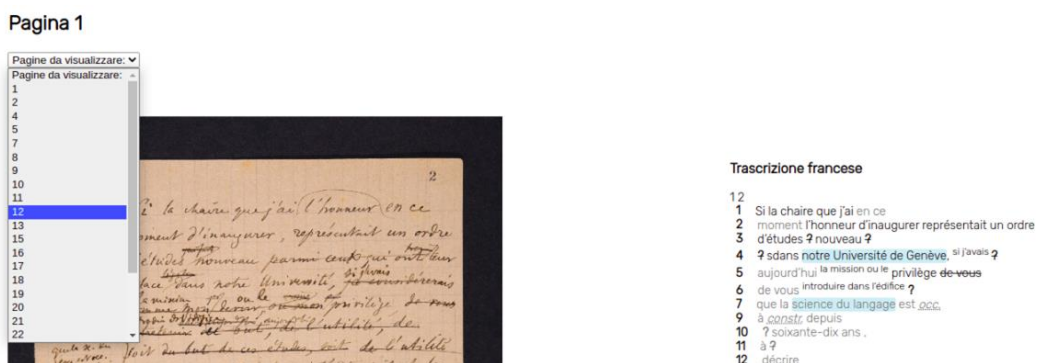 Pagina 1
Pagine da visualizzare:
Pagine da visualizzare:
1
2
4
5
7
8
9
10
11
12
13
15
16
17
18
19
20
21
22
2
la chaire que j'ai l'honneur en ce
d'inaugurer, représentait un ordre
études nouveau parmi ceux qui ont leur
dans notre Université, si j'avais considérerais
ou le privilège de vous
de l'utilité, de
soit du but de ces études, soit de l'utilité
Trascrizione francese
1 2
1 Si la chaire que j'ai en ce
2 moment l'honneur d'inaugurer représentait un ordre
3 d'études ? nouveau ?
4 ? sdans notre Université de Genève, si j'avais ?
5 aujourd'hui la mission ou le privilège de vous
6 de vous introduire dans l'édifice ?
7 que la science du langage est occ.
9 à constr. depuis
10 ? soixante-dix ans ,
11 à ?
12 décrire